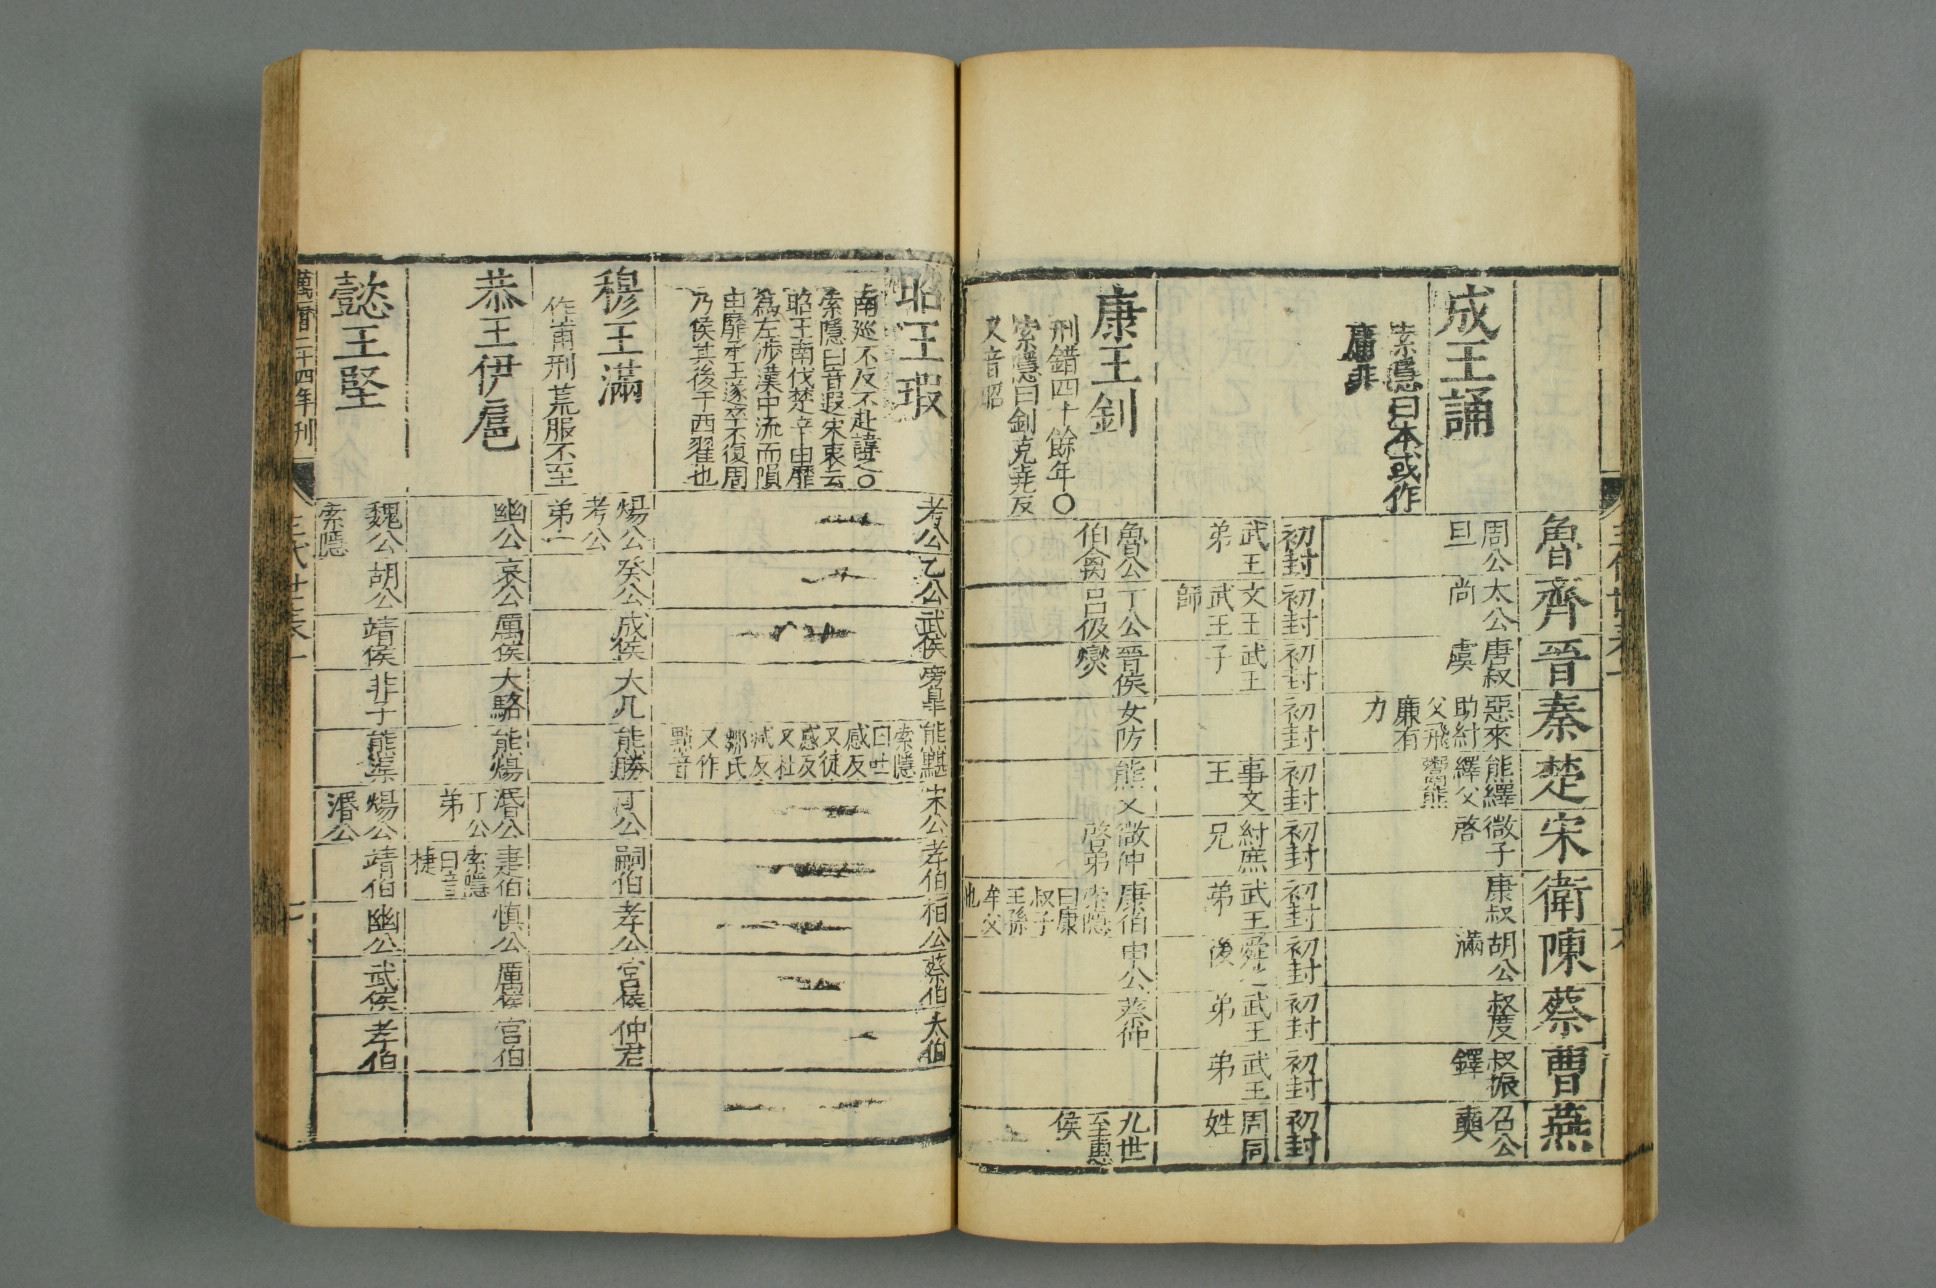 魯齊晉秦楚宋衛陳蔡曹燕
成王誦
索隱曰本或作
庸非
周公
旦
太公
尚
唐叔
虞
惡來
助紂
父飛
廉有
力
熊繹
繹父
鬻熊
微子
啓
康叔
胡公
滿
叔度
叔振
鐸
召公
奭
初封
初封
初封
初封
初封
初封
初封
初封
初封
初封
初封
武王
弟
文王
武王
師
武王
子
事文
王
紂庶
兄
武王
弟
舜之
後
武王
弟
武王
弟
周同
姓
康王釗
刑錯四十餘年○
索隱曰釗克堯反
又音昭
魯公
伯禽
丁公
呂伋
晉侯
燮
女防
熊乂
微仲
啓弟
康伯
索隱
曰康
叔子
王孫
牟父
也
申公
蔡仲
九世
至惠
侯
昭王瑕
南巡不反不赴諱之○
索隱曰音遐宋衷云
昭王南伐楚辛由靡
爲左涉漢中流而隕
由靡承王遂卒不復周
乃侯其後于西翟也
考公
乙公
武侯
旁皐
熊䵣
索隱
曰吐
感反
又徒
感反
又杜
減反
鄒氏
又作
點音
宋公
孝伯
相公
蔡伯
太伯
穆王滿
作甫刑荒服不至
煬公
考公
弟一
癸公
成侯
大几
熊勝
丁公
嗣伯
孝公
宮侯
仲君
恭王伊扈
幽公
哀公
厲侯
大駱
熊煬
湣公
丁公
弟
疌伯
索隱
曰音
捷
慎公
厲侯
宮伯
懿王堅
魏公
索隱
胡公
靖侯
非子
熊渠
煬公
湣公
靖伯
幽公
武侯
孝伯
萬曆二十四年刊
三代世表一
七